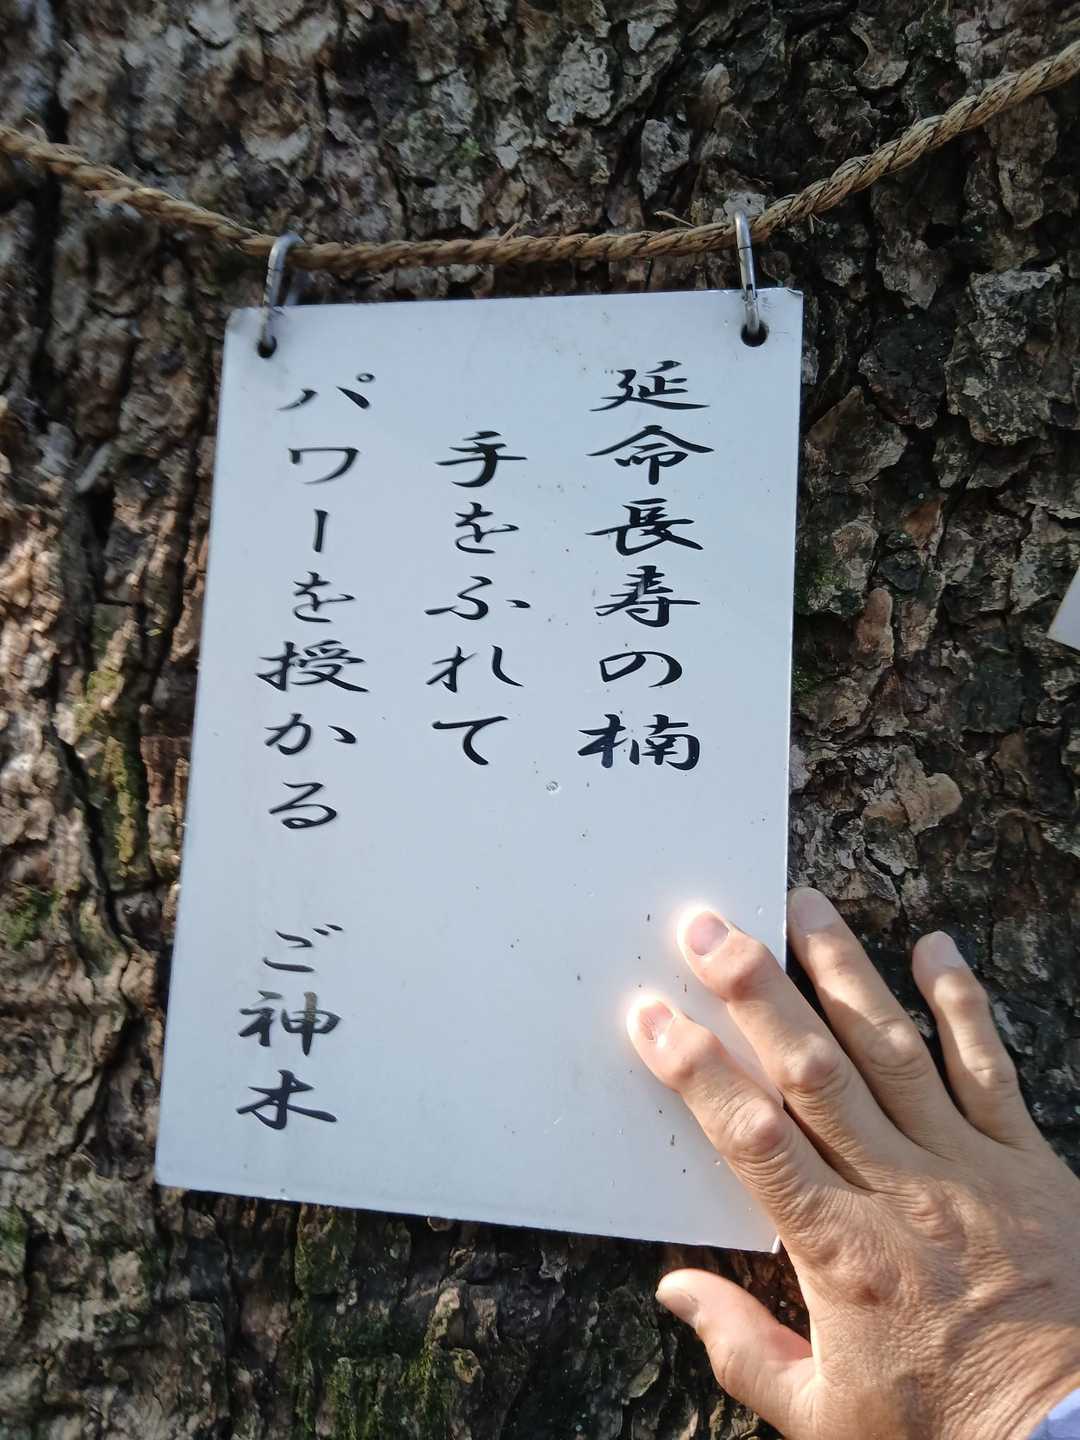 延命長寿の楠
手をふれて
パワーを授かる　ご神木